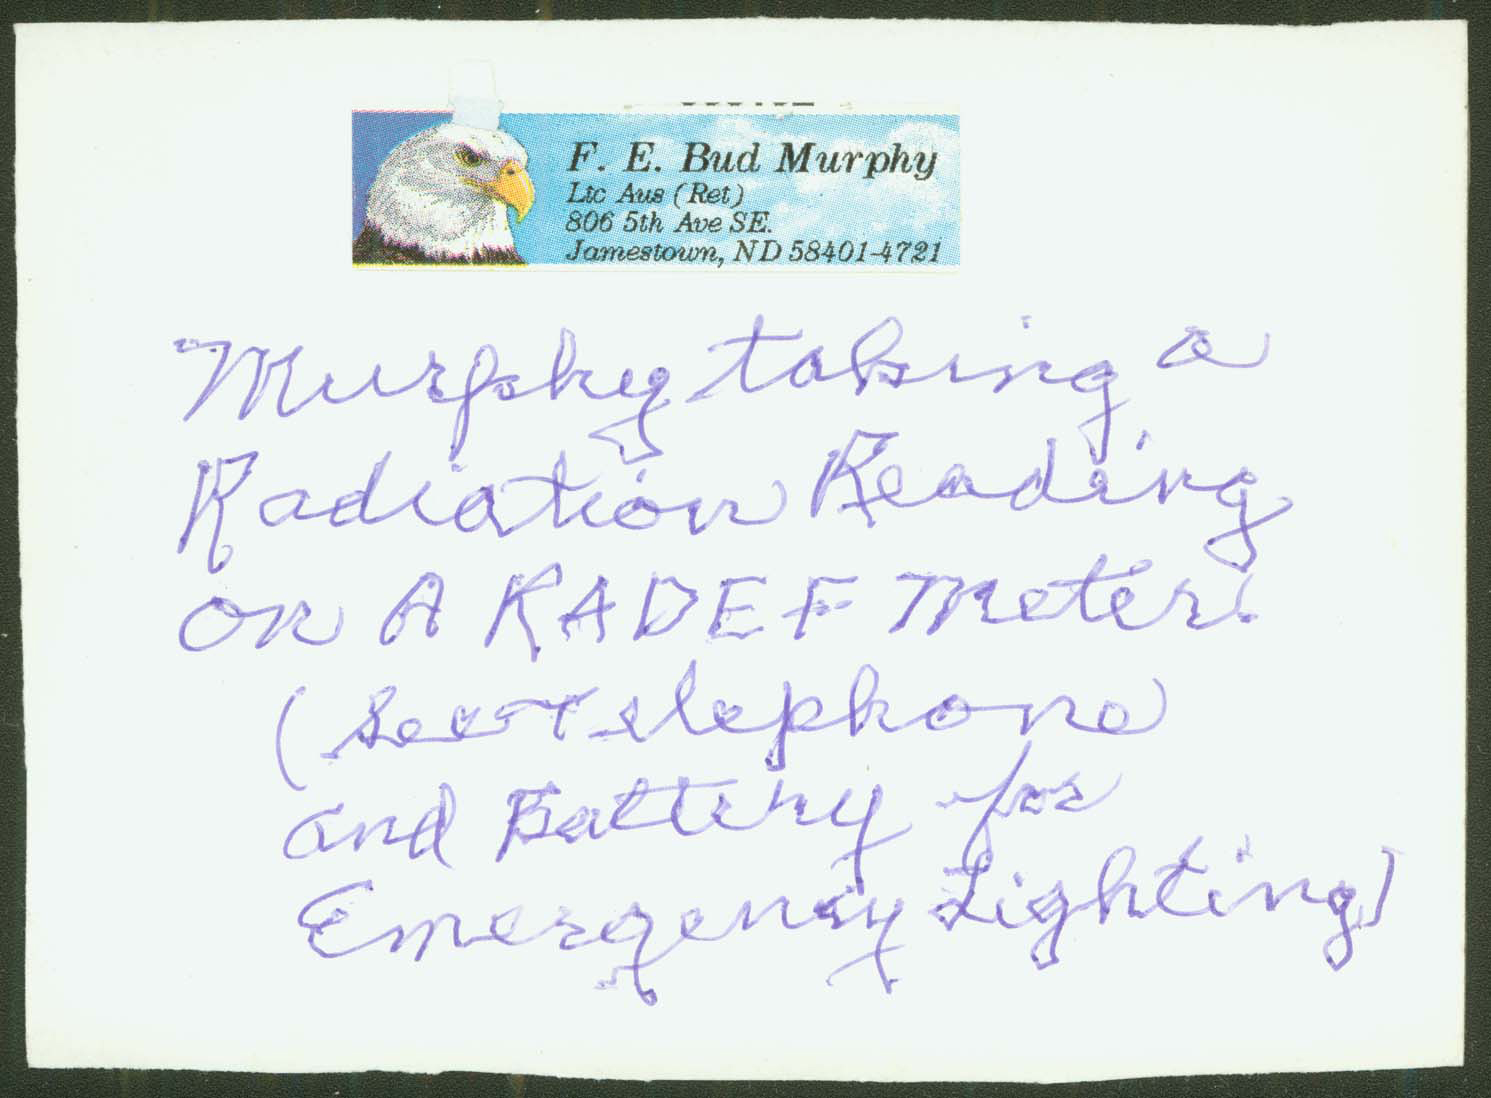 F. E. Bud Murphy
Ltc Aus (Ret)
806 5th Ave SE.
Jamestown, ND 58401-4721
Murphy taking a
Radiation Reading
on A RADEF Meter.
(See Telephone
and Battery for
Emergency Lighting)